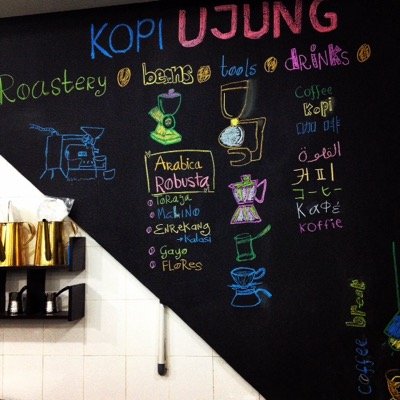 KOPI UJUNG
Roastery beans tools drinks
Coffee
Kopi
القهوة
커피
コーヒー
Кафé
Koffie
Arabica
Robusta
Toraja
Enrekang
→ Kalosi
Gayo
FLORES
coffee break